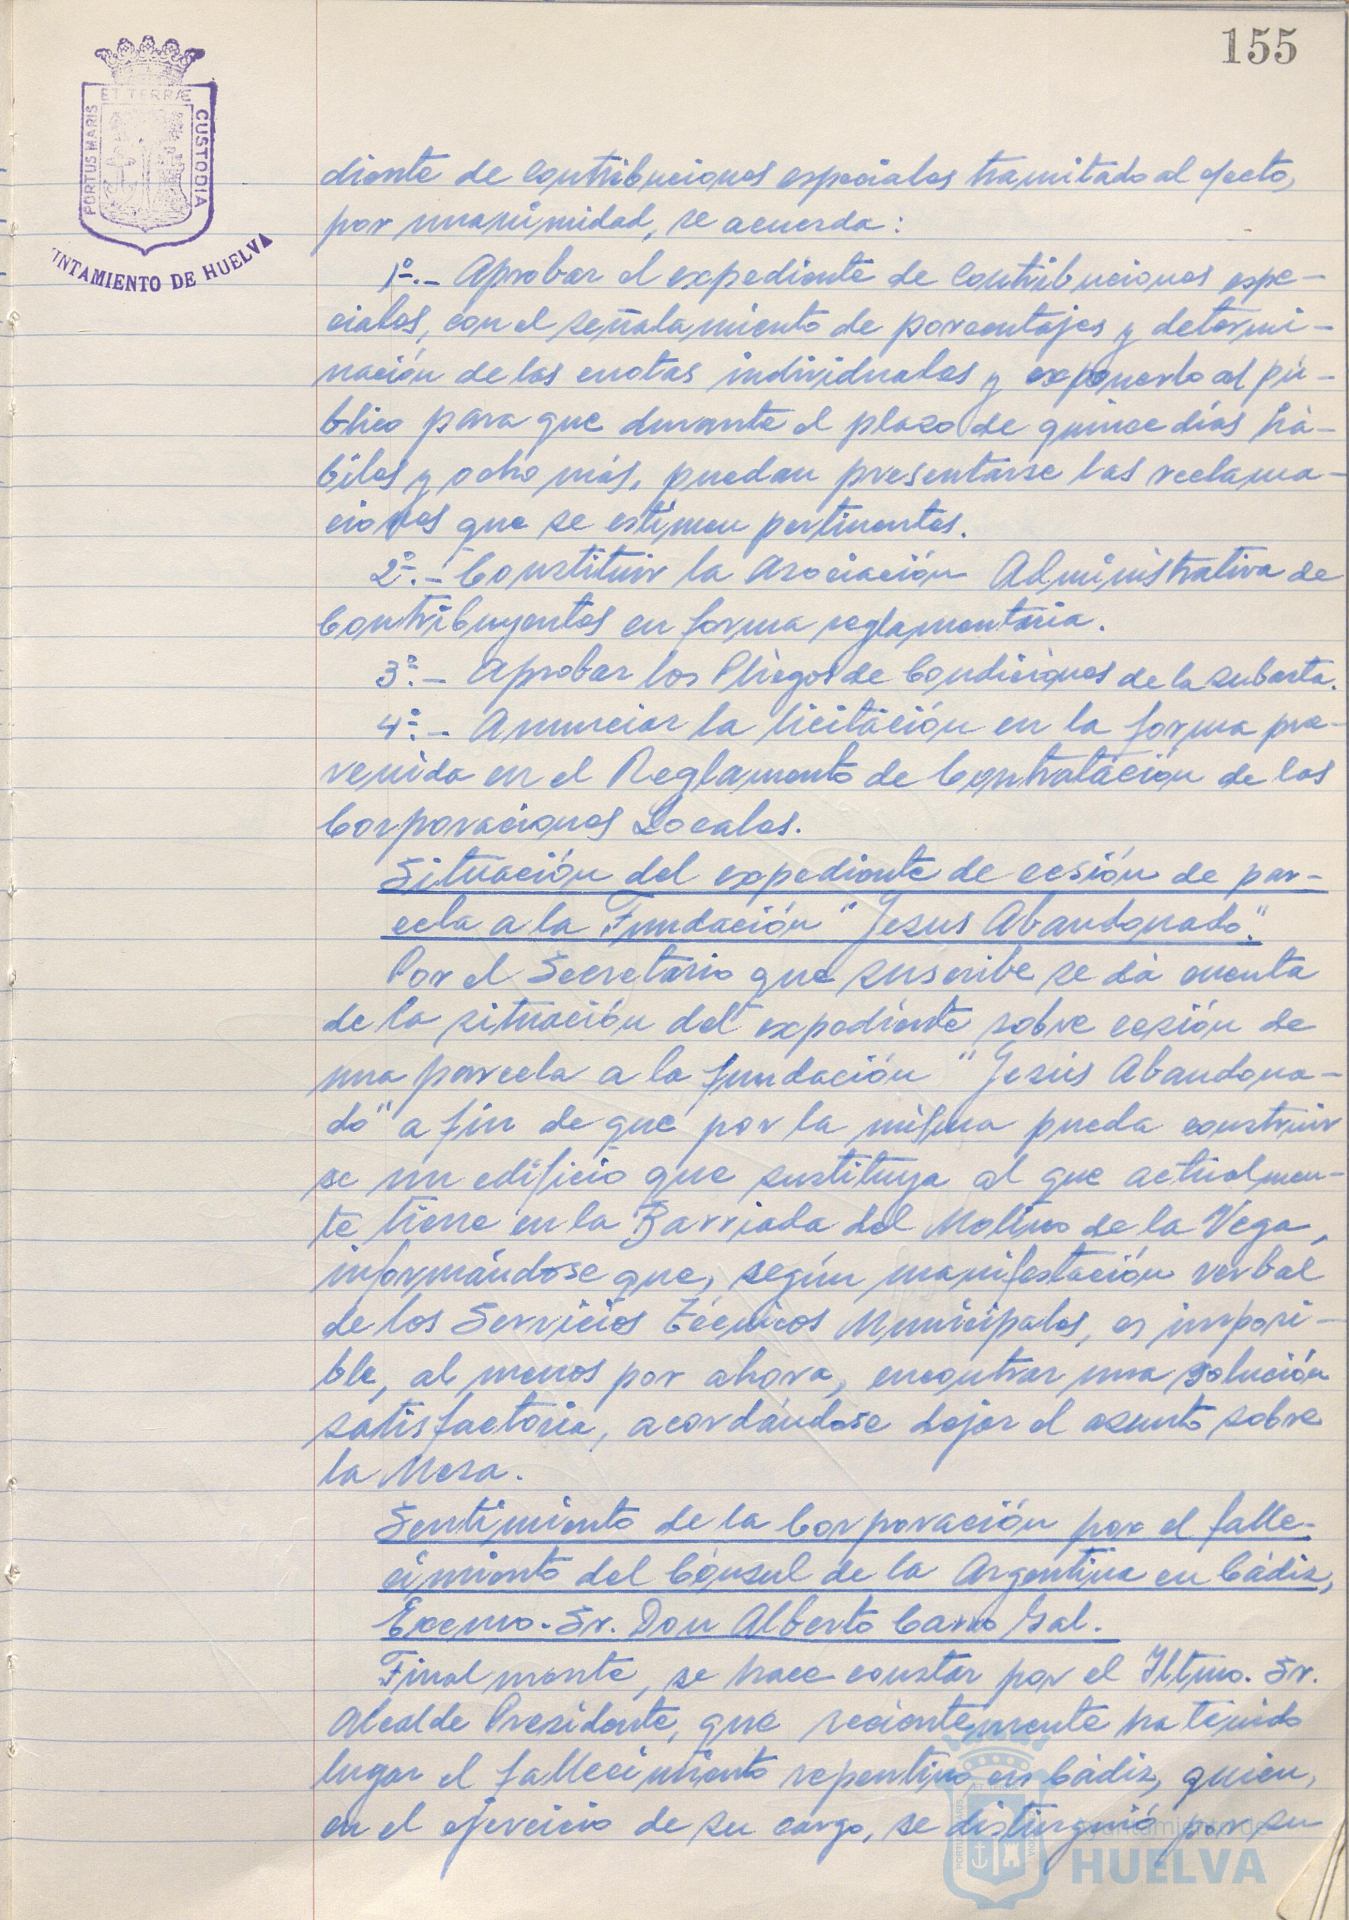 155
ET TERRÆ
PORTUS MARIS
CUSTODIA
UNTAMIENTO DE HUELVA
diente de contribuciones especiales tramitado al efecto,
por unanimidad, se acuerda:
1º.- Aprobar el expediente de contribuciones espe-
ciales, con el señalamiento de porcentajes y determi-
nación de las cuotas individuales y exponerlo al pú-
blico para que durante el plazo de quince días há-
biles y ocho más, puedan presentarse las reclama-
ciones que se estimen pertinentes.
2º.- Constituir la Asociación Administrativa de
Contribuyentes en forma reglamentaria.
3º.- Aprobar los Pliegos de Condiciones de la subasta.
4º.- Anunciar la licitación en la forma pre-
venida en el Reglamento de Contratación de las
Corporaciones Locales.
Situación del expediente de cesión de par-
cela a la Fundación "Jesus Abandonado".
Por el Secretario que suscribe se dá cuenta
de la situación del expediente sobre cesión de
una parcela a la fundación "Jesús Abandona-
do" a fin de que por la misma pueda construir
se un edificio que sustituya al que actualmen-
te tiene en la Barriada del Molino de la Vega,
informándose que, según manifestación verbal
de los Servicios Técnicos Municipales, es imposi-
ble, al menos por ahora, encontrar una solución
satisfactoria, acordándose dejar el asunto sobre
la Mesa.
Sentimiento de la Corporación por el falle-
cimiento del Cónsul de la Argentina en Cádiz,
Excmo. Sr. Don Alberto Caro Gal.
Finalmente, se hace constar por el Iltmo. Sr.
Alcalde Presidente, que recientemente ha tenido
lugar el fallecimiento repentino en Cádiz, quien,
en el ejercicio de su cargo, se distinguió por su
Ayuntamiento de
HUELVA